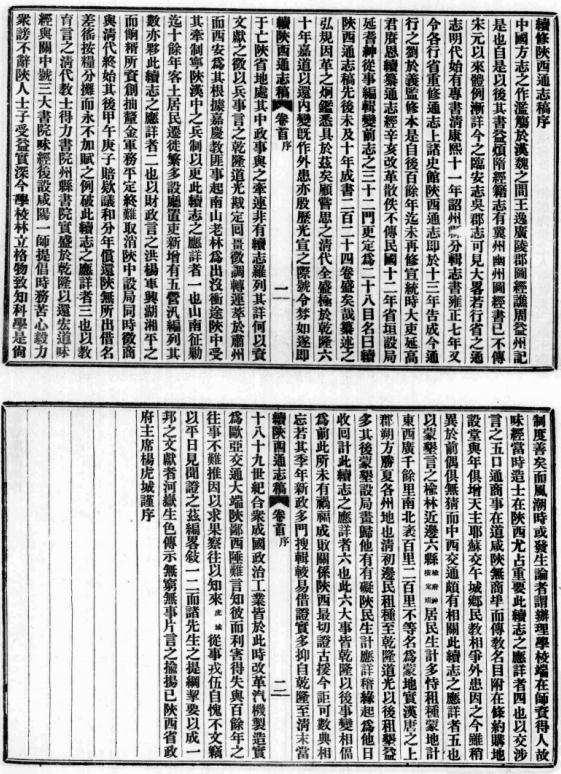 續修陝西通志稿序
中國方志之作濫觴於漢魏之間王逸廣陵郡圖經譙周益州記
是也自是以後其書益煩隋經籍志有冀州幽州圖經書已不傳
宋元以來體例漸詳今之臨安志吳郡志可見大畧若行省之通
志明代始有專書清康熙十一年詔州縣分輯志書雍正七年又
令各行省重修通志上諸史館陝西通志即於十三年告成今通
行之劉於義監修本是自後百餘年迄未再修宣統時大吏延高
君賡恩續纂通志經辛亥改革散佚不傳民國十二年省垣設局
延耆紳從事編輯變前志之三十二門更定為二十八目名曰續
陝西通志稿先後未及十年成書二百二十四卷盛矣哉纂述之
弘規因革之炯鑑悉具於茲矣顧嘗思之清代全盛極於乾隆六
十年嘉道以還內變既作外患亦殷歷光宣之際號令棼如遂即
續陝西通志稿 卷首 序 一
于亡陝省地處其中政事與之牽連非有續志羅列其詳何以資
文獻之徵以兵事言之乾隆道光戡定回畺徵調轉運萃於肅州
而西安為其根據嘉慶教匪事起南山老林為出沒衝途陝中受
其牽制寧陝漢中之兵制以更此續志之應詳者一也山南征勦
迄十餘年客土居民遷徙繁多設廳置吏新增有五營汎編列其
數亦夥此續志之應詳者二也以財政言之洪楊軍興湖湘平之
而餉糈所資創抽釐金軍務平定終難取消陝中設局同時徵商
與清代終始其後甲午庚子賠欵議和分年償還陝無所出借名
差徭按糧分攤而永不加賦之例破此續志之應詳者三也以教
育言之清代教士得力書院州縣書院實盛於乾隆以還宏道味
經與關中號三大書院味經後設咸陽一師提倡時務苦心毅力
衆謗不辭陝人士子受益實深今學校林立格物致知科學是尚
制度善矣而風潮時或發生論者謂辦理學校端在師資得人故
味經當時造士在陝西尤占重要此續志之應詳者四也以交涉
言之五口通商事在道咸陝無商埠而傳教名目附在條約購地
設堂與年俱增天主耶蘇交午城鄉民教相爭外患因之今雖稍
異於前偶俱無猜而中西交通頗有相關此續志之應詳者五也
以蒙墾言之榆林近邊六縣居民生計多恃租種蒙地計
東西廣千餘里南北袤百里二百里不等名為蒙地實漢唐之上
郡朔方勝夏各州地也清初邊民租種至乾隆道光以後租墾益
多其後蒙墾設局畫歸他有有礙陝民生計應詳稽緣起為他日
收回計此續志之應詳者六也此六大事皆乾隆以後事變相偪
為前此所未有禍福成敗關係陝西最切證古援今詎可數典相
忘若其季年新政多門搜輯較易借證實多抑自乾隆至清末當
續陝西通志稿 卷首 序 二
十八十九世紀合衆成國政治工業皆於此時改革汽機製造實
為歐亞交通大端陝鄙西陲難言知彼而利害得失與百餘年之
往事不難推因以求果察往以知來虎城從事戎伍自愧不文竊
以平日見聞證之茲編畧敘一二而諸先生之提綱挈要以成一
邦之文獻者河嶽生色傳示無窮無事片言之揄揚已陝西省政
府主席楊虎城謹序